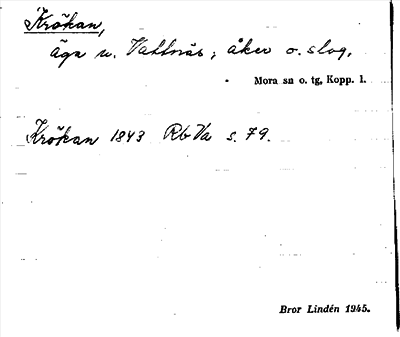 Krökan,
äga u. Vattnäs; åker o. slog,
Mora sn o. tg, Kopp. l.
Krökan 1843 Rb Va s. 79.
Bror Lindén 1945.